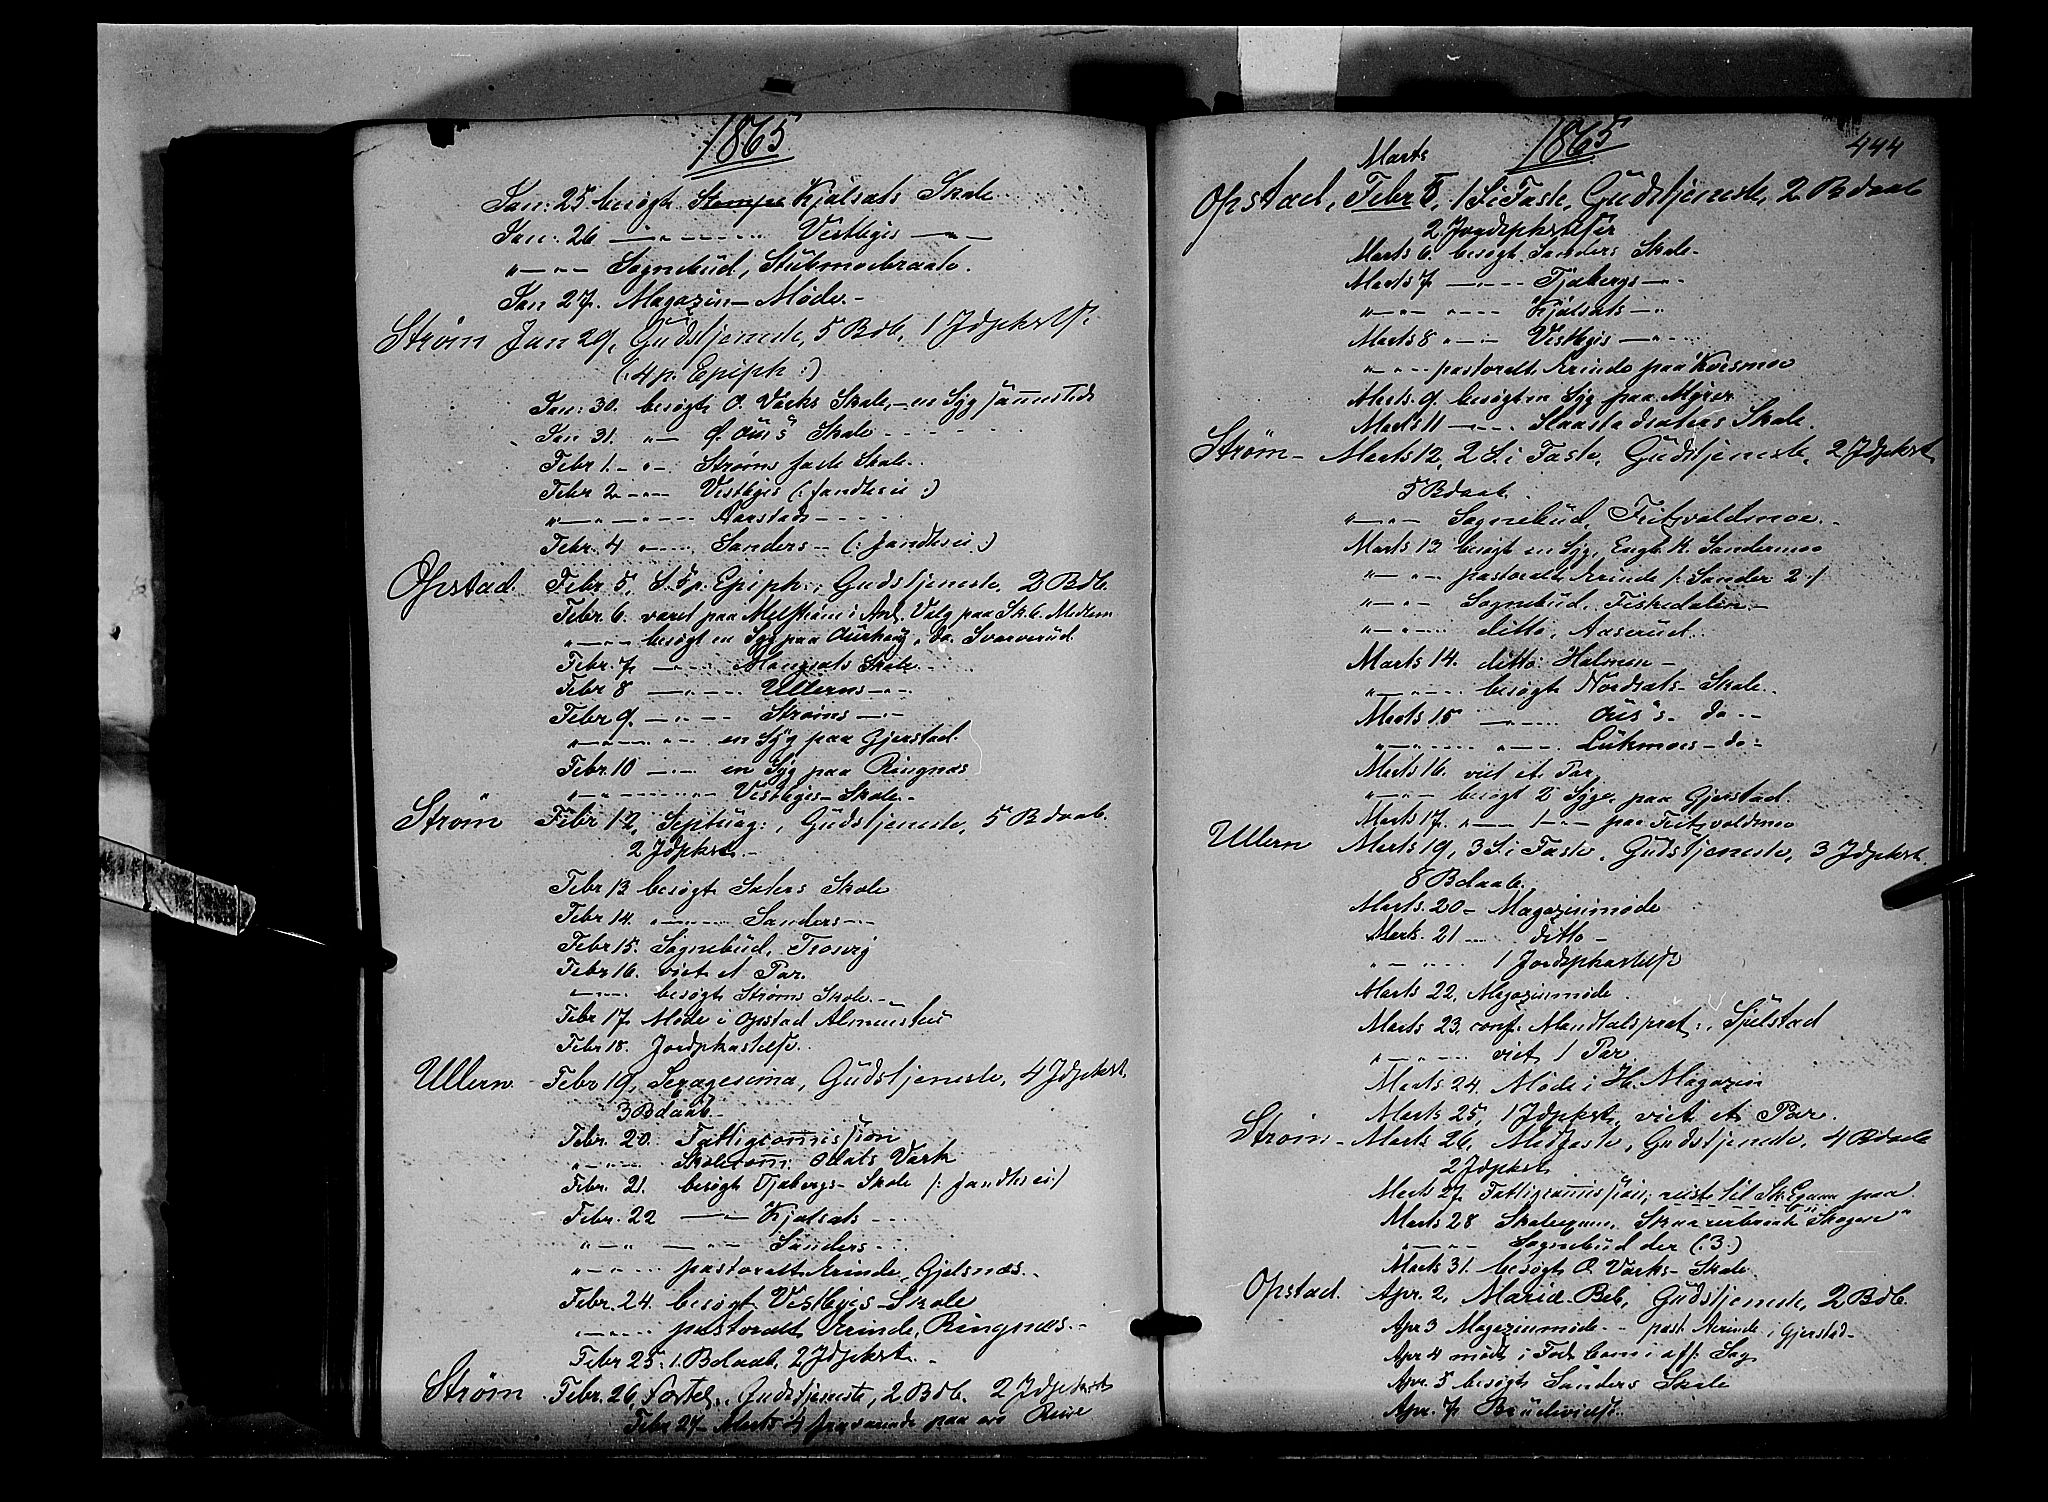 1865
Jan: 25 besøgt Kjølsæts Skole
Jan: 26 — " — Vestbyes —
" — " — Sognebud, Stubmobraate.
Jan 27. Magazin-Møde. —
Strøm Jan 29, Gudstjeneste, 5 Bdb, 1 Jdpkst.
(: 4 p. Epiph :)
Jan: 30. besøgt O. Værks Skole, — en Syg sammesteds
Jan 31. " — Skole
Febr 1. — " — Strøms faste Skole.
Febr 2 — " — Vestbyes
" — " — Aarstads —
Febr. 4 " — Sanders —
Opstad Febr 5, S. 5 p. Epiph:, Gudstjeneste, 2 Bdb.
Febr 6. været paa i Anl. Valg paa Medlem
" — " — besøgt en Syg paa , do. Svarverud.
Febr. 7 — " — Skole
Febr 8 — " — Ullerns — " —
Febr 9. — " — Strøms — " —
" — " — en Syg paa Gjerstad.
Febr. 10 — " — en Syg paa Ringnæs
" — " — Vestbyes — Skole —
Strøm Febr 12, Septuag:, Gudstjeneste, 5 Bdaab.
2 Jdpkst. —
Febr 13 besøgt Skole
Febr 14. " — " — Sanders —
Febr 15. Sognebud,
Febr 16. viet et Par.
" — " — besøgt Strøms Skole. —
Febr 17. Møde i Opstad
Febr 18. Jordpkastelse.
Ullern. Febr 19, Sexagesima, Gudstjeneste, 4 Jdpkst.
3 Bdaab —
Febr. 20. Fattigcommission
" — " — Skolecomm. Odals Værk
Febr. 21. besøgt Tjabergs — Skole
Febr. 22 — " — Kjølsæts —
" — " — Sanders —
" — " — pastoralt Ærinde, Gjelsnæs. —
Febr. 24. besøgt Vestbyes — Skole
" — " — pastoralt Ærinde, Ringnæs. —
Febr 25. 1. Bdaab, 2 Jdpkst. —
Strøm Febr. 26, Gudstjeneste, 2. Bdb. 2 Jdpkst
Febr 27 — Marts 4 fraværende paa en Reise
1865 444
Marts
Opstad, Febr 5, 1 S. i Faste, Gudstjeneste, 2 Bdaab
2 Jordpkastelser
Marts 6. besøgt Sanders Skole —
Marts 7 — " — Tjabergs — " —
" — " — Kjølsæts — " —
Marts 8 " — " — Vestbyes — " —
" — " — pastoralt Ærinde paa Korsmo
Marts. 9. besøgt en Syg paa Myrer
Marts 11 — " — Slaastadsæters Skole.
Strøm — Marts 12, 2 S. i Faste, Gudstjeneste, 2 Jdpkst
5 Bdaab.
" — " — Sognebud, Fritzvoldmoe. —
Marts 13 besøgt en Syg, Sandermoe
" — " — pastoralt Ærinde /: Sander 2 :/
" — " — Sognebud, Fiskedalen —
" — " — ditto, Aaserud.
Marts 14. ditto: Holmen —
" — " — besøgt Nordsæts — Skole.
Marts 15 " — — do —
" — " — " — — do —
Marts 16. viet et Par
" — " — besøgt 2 Syge paa Gjerstad.
Marts 17. " — 1 — " — paa Fritzvoldmoe
Ullern Marts 19, 3 S. i Faste, Gudstjeneste, 3 Jdpkst.
8 Bdaab.
Marts. 20 — Magazinmøde
Marts. 21 — ditto —
" — " — 1 Jordpkastelse
Marts 22, Magazinmøde.
Marts 23. conf. Mandtalsprot:, Sjulstad
" — " — viet 1 Par.
Marts 24. Møde i Magazin
Marts 25, 1 Jdpkst. viet et Par.
Strøm — Marts 26, Midfaste, Gudstjeneste, 4 Bdaab
2 Jdpkst.
Marts 27. Fattigcommission, reiste til paa
Marts 28 Skoleexam. Skogene"
" — " — Sognebud der (: 3 :)
Marts 31. besøgt O. Værks — Skole
Opstad. Apr. 2, Mariæ Beb, Gudstjeneste, 2 Bdb.
Apr 3 Magazinmøde — past. Ærinde, Gjerstad —
Apr 4 mødt i off. Sag
Apr. 5 besøgt Sanders Skole
Apr. 7.